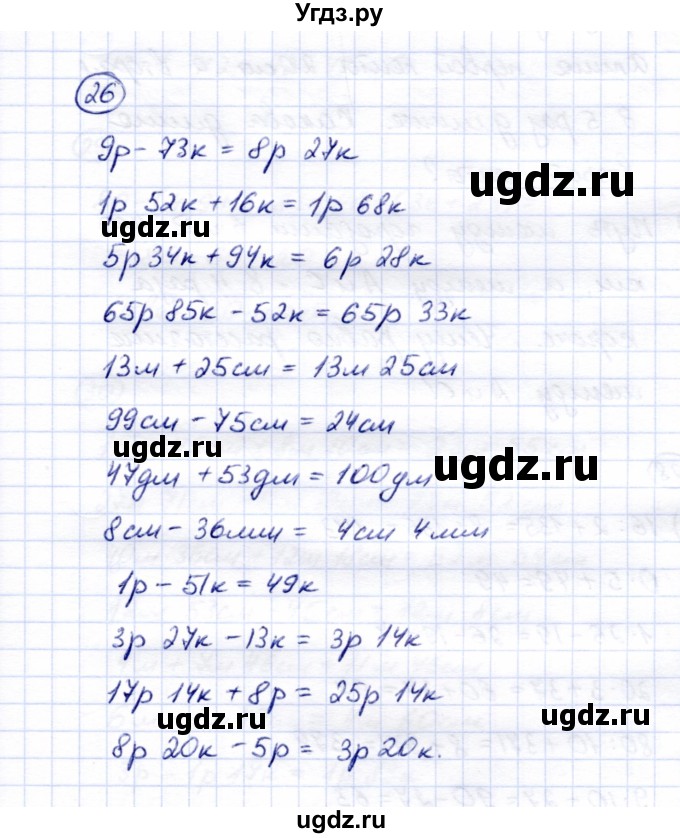 Угдз.ру
26
9р - 73к = 8р 27к
ugdz.ru
1р 52к + 16к = 1р 68к
ugdz.ru
5р 34к + 94к = 6р 28к
65р 85к - 52к = 65р 33к
13м + 25см = 13м 25см
99см - 75см = 24см
ugdz.ru
ugdz.ru
47дм + 53дм = 100дм
8см - 36мм = 4см 4мм
1р - 51к = 49к
3р 27к - 13к = 3р 14к
17р 14к + 8р = 25р 14к
ugdz.ru
ugdz.ru
8р 20к - 5р = 3р 20к.
ugdz.ru